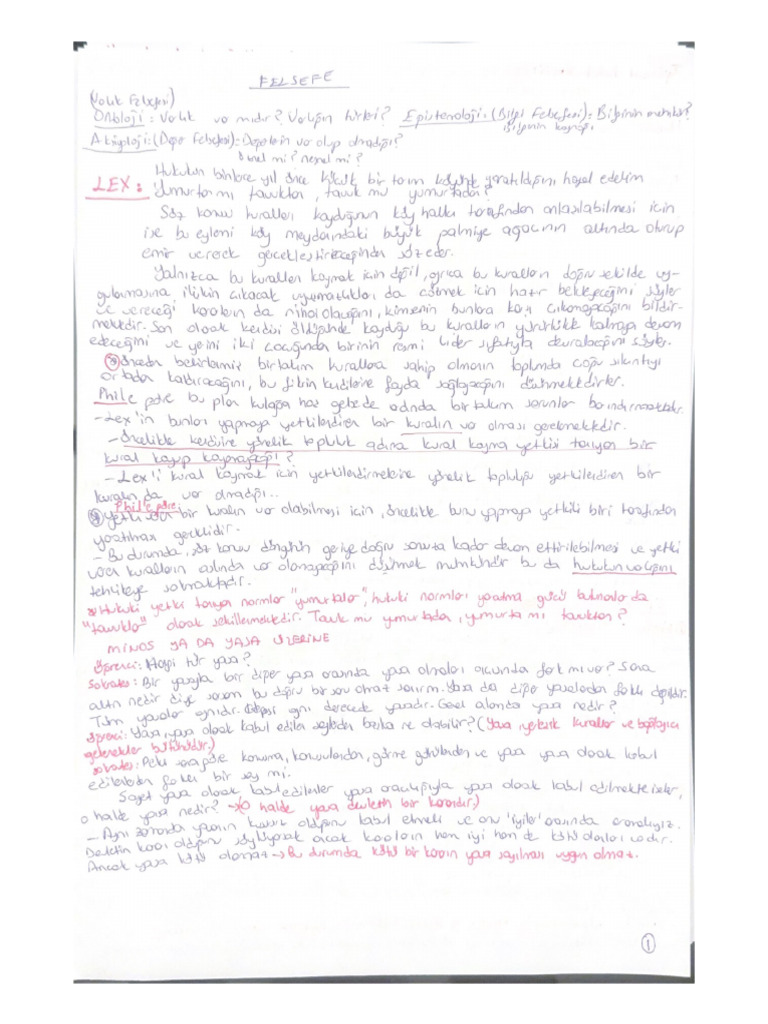 FELSEFE
(Varlık Felsefesi)
Ontoloji: Varlık var mıdır? Varlığın türleri? Epistemoloji: (Bilgi Felsefesi): Bilginin
Bilginin kaynağı
Aksiyoloji: (Değer Felsefesi): Değerlerin var olup olmadığı?
öznel mi? nesnel mi?
LEX: Hukukun binlerce yıl önce küçük bir tarım köyünde yaratıldığını hayal edelim
Yumurta mı tavuktan, tavuk mu yumurtadan?
Söz konusu kuralları koyduğunun köy halkı tarafından anlaşılabilmesi için
ise bu eylemi köy meydanındaki büyük palmiye ağacının altında oturup
emir vererek gerçekleştireceğinden söz eder.
Yalnızca bu kuralları koymak için değil, ayrıca bu kuralların doğru şekilde uy-
gulanmasına ilişkin çıkacak uyuşmazlıkları da çözmek için hazır bekleyeceğini söyler
ve vereceği kararların da nihai olacağını, kimsenin bunlara karşı çıkamayacağını bildir-
mektedir. Son olarak kendisi öldüğünde koyduğu bu kuralların yürürlükte kalmaya devam
edeceğini ve yerini iki çocuğundan birinin resmi lider sıfatıyla devralacağını söyler.
önceden belirlenmiş birtakım kurallara sahip olmanın toplumda çoğu sıkıntıyı
ortadan kaldıracağını, bu fikrin kendilerine fayda sağlayacağını düşünmektedirler.
Phil'e göre bu plan kulağa hoş gelse de aslında birtakım sorunlar barındırmaktadır.
- Lex'in bunları yapmaya yetkilendiren bir kuralın var olması gerekmektedir.
- Öncelikle kendisine yönelik topluluk adına kural koyma yetkisi tanıyan bir
kural koyup koymayacağı?
- Lex'i kural koymak için yetkilendirmelerine yönelik topluluğu yetkilendiren bir
kuralın da var olmadığı..
Phil'e göre
yetki veren bir kuralın var olabilmesi için, öncelikle bunu yapmaya yetkili biri tarafından
yaratılması gereklidir.
- Bu durumda, söz konusu döngünün geriye doğru sonsuza kadar devam ettirilebilmesi ve yetki
veren kuralların aslında var olamayacağını düşünmek mümkündür bu da hukukun varlığını
tehlikeye sokmaktadır.
* Hukuki yetki tanıyan normlar "yumurtalar", hukuki normları yaratma gücü bulunanlar da
"tavuklar" olarak şekillenmektedir. Tavuk mu yumurtadan, yumurta mı tavuktan?
MINOS YA DA YASA ÜZERİNE
Öğrenci: Hangi tür yasa?
Sokrates: Bir yasayla bir diğer yasa arasında yasa olmaları açısından fark mı var? Sana
altın nedir diye sorsam bu doğru bir soru olmaz sanırım. Yasa da diğer yasalardan farklı değildir.
Tüm yasalar aynıdır. Hepsi aynı derecede yasadır. Genel anlamda yasa nedir?
Öğrenci: Yasa, yasa olarak kabul edilen şeylerden başka ne olabilir? (Yasa, yerleşik kurallar ve bağlayıcı
gelenekler bütünüdür.)
Sokrates: Peki sana göre konuşma, konuşulandan, görme görülenden ve yasa yasa olarak kabul
edilenlerden farklı bir şey mi.
Şayet yasa olarak kabul edilenler yasa aracılığıyla yasa olarak kabul edilmekteyseler,
o halde yasa nedir? → (O halde yasa devletin bir kararıdır.)
- Aynı zamanda yasanın olduğunu kabul etmeli ve onu 'iyiler' arasında aramalıyız.
Devletin kararı olduğunu söylüyorsak ancak kararların hem iyi hem de kötü olanları vardır.
Ancak yasa kötü olamaz → Bu durumda kötü bir kararın yasa sayılması uygun olmaz.
1